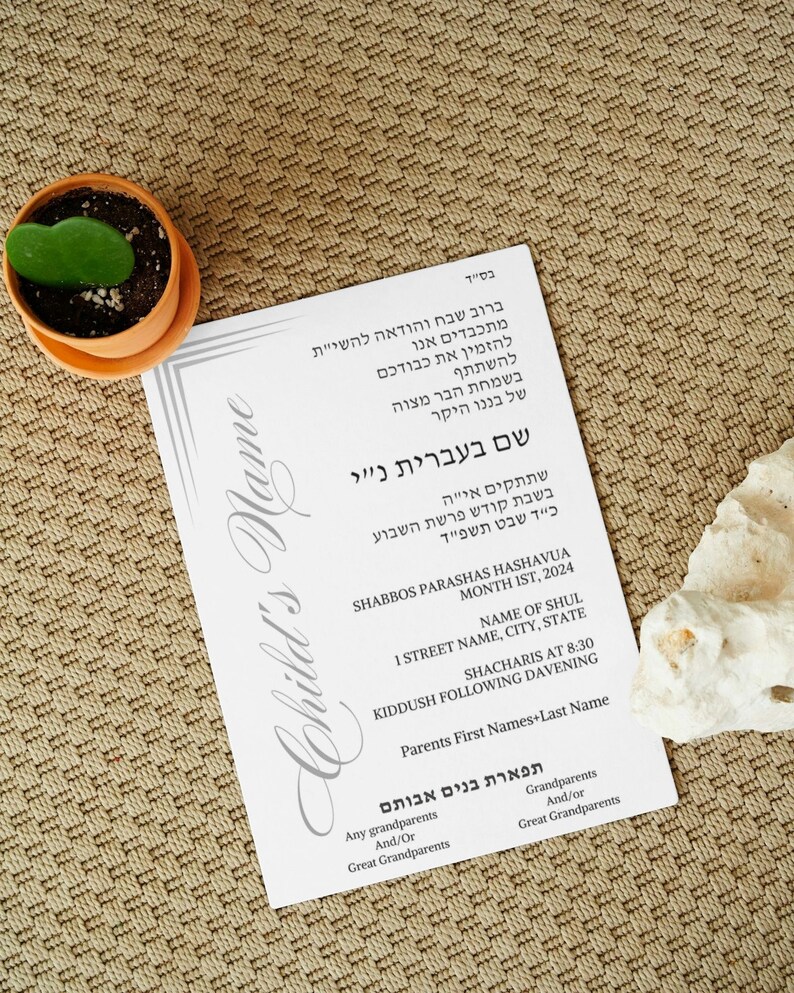 בס״ד
ברוב שבח והודאה להשי״ת
מתכבדים אנו
להזמין את כבודכם
להשתתף
בשמחת הבר מצוה
של בננו היקר
שם בעברית נ״י
שתתקים אי״ה
בשבת קודש פרשת השבוע
כ״ד שבט תשפ״ד
SHABBOS PARASHAS HASHAVUA
MONTH 1ST, 2024
NAME OF SHUL
1 STREET NAME, CITY, STATE
SHACHARIS AT 8:30
KIDDUSH FOLLOWING DAVENING
Parents First Names+Last Name
תפארת בנים אבותם
Any grandparents
And/Or
Great Grandparents
Grandparents
And/or
Great Grandparents
Child's Name